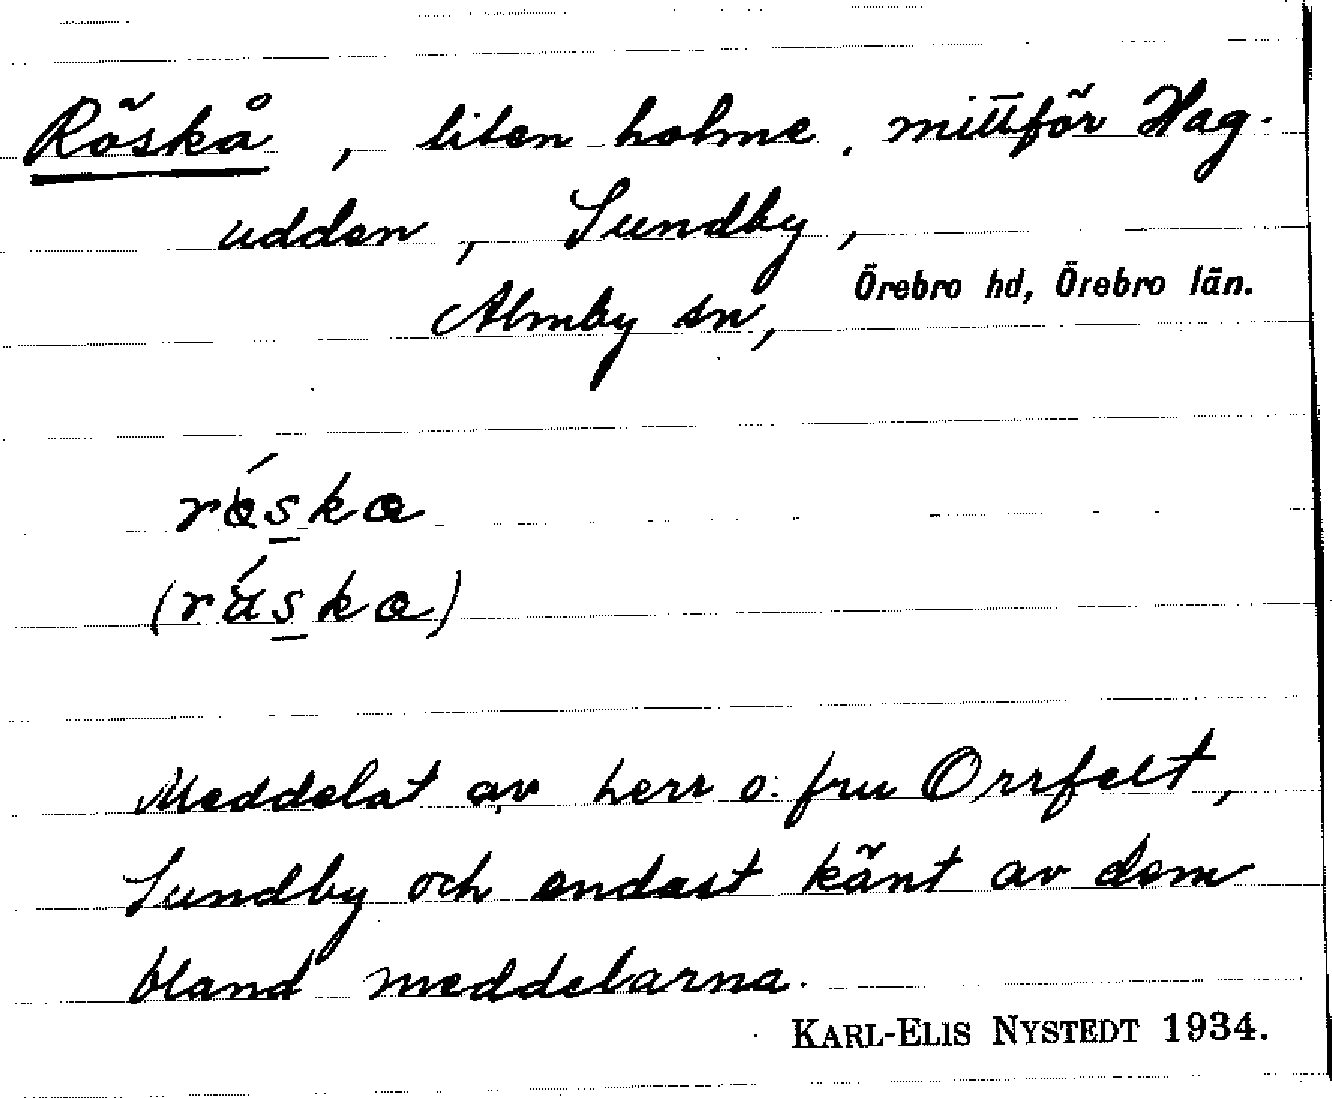 Röskå, liten holme, mittför Hag-
udden, Sundby,
Almby sn, Örebro hd, Örebro län.
Meddelat av herr o. fru Orrfelt,
Sundby och endast känt av dem
bland meddelarna.
KARL-ELIS NYSTEDT 1934.